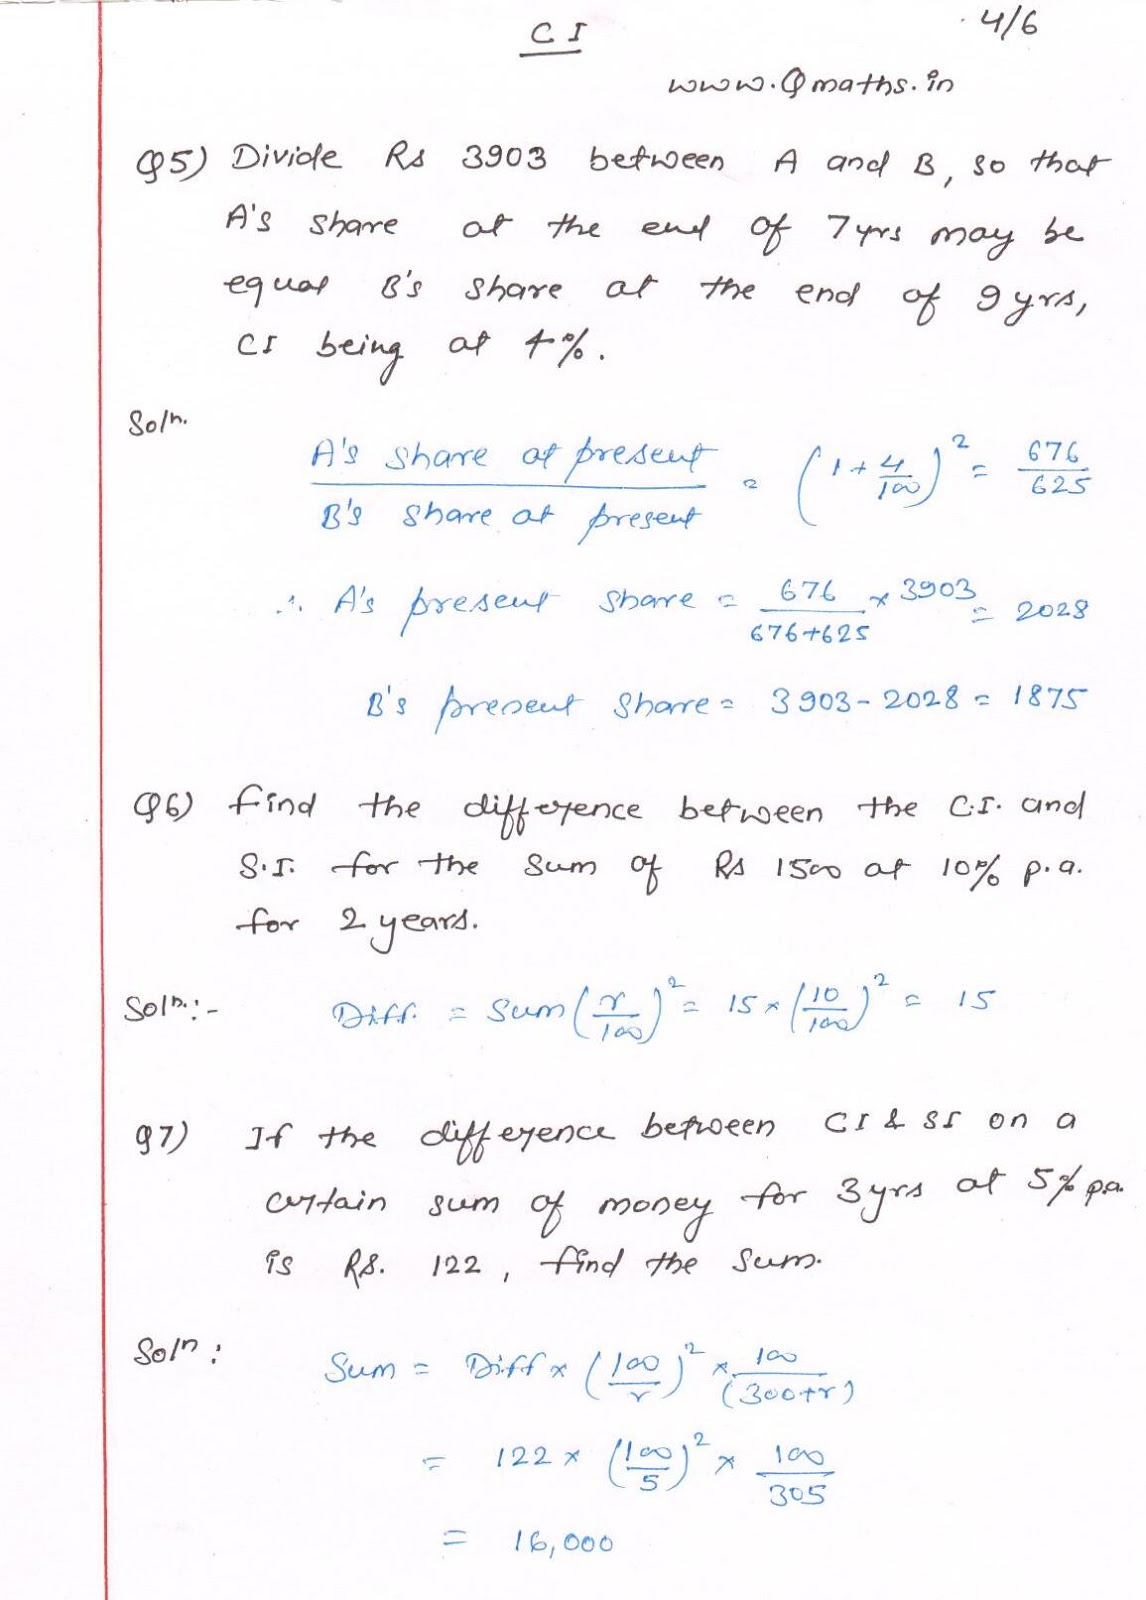 CI
4/6
www.Qmaths.in
Q5) Divide Rs 3903 between A and B, so that
A's share at the end of 7yrs may be
equal B's share at the end of 9yrs,
CI being at 4%.
Soln.
A's share at present / B's share at present = (1 + 4/100)² = 676/625
∴ A's present share = 676/(676+625) × 3903 = 2028
B's present share = 3903 - 2028 = 1875
Q6) find the difference between the C.I. and
S.I. for the sum of Rs 1500 at 10% p.a.
for 2 years.
Soln.:- Diff. = Sum (r/100)² = 15 × (10/100)² = 15
Q7) If the difference between CI & SI on a
certain sum of money for 3yrs at 5% p.a.
is RS. 122, find the sum.
Soln: Sum = Diff × (100/r)² × 100/(300+r)
= 122 × (100/5)² × 100/305
= 16,000